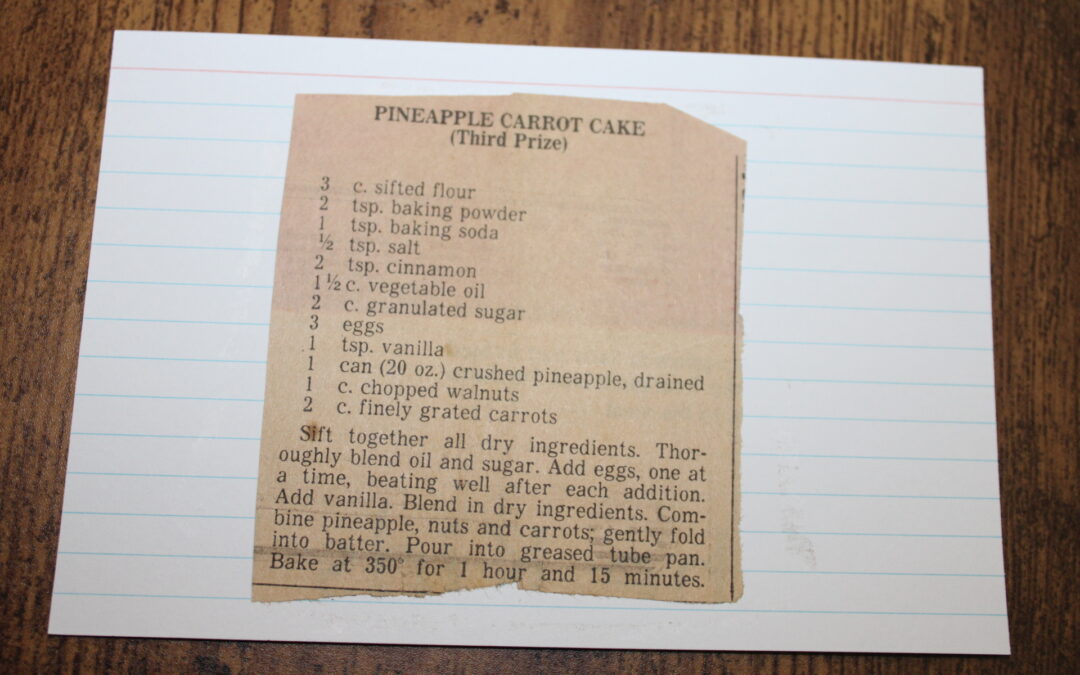 PINEAPPLE CARROT CAKE
(Third Prize)
3 c. sifted flour
2 tsp. baking powder
1 tsp. baking soda
½ tsp. salt
2 tsp. cinnamon
1½ c. vegetable oil
2 c. granulated sugar
3 eggs
1 tsp. vanilla
1 can (20 oz.) crushed pineapple, drained
1 c. chopped walnuts
2 c. finely grated carrots
Sift together all dry ingredients. Thor-
oughly blend oil and sugar. Add eggs, one at
a time, beating well after each addition.
Add vanilla. Blend in dry ingredients. Com-
bine pineapple, nuts and carrots; gently fold
into batter. Pour into greased tube pan.
Bake at 350° for 1 hour and 15 minutes.